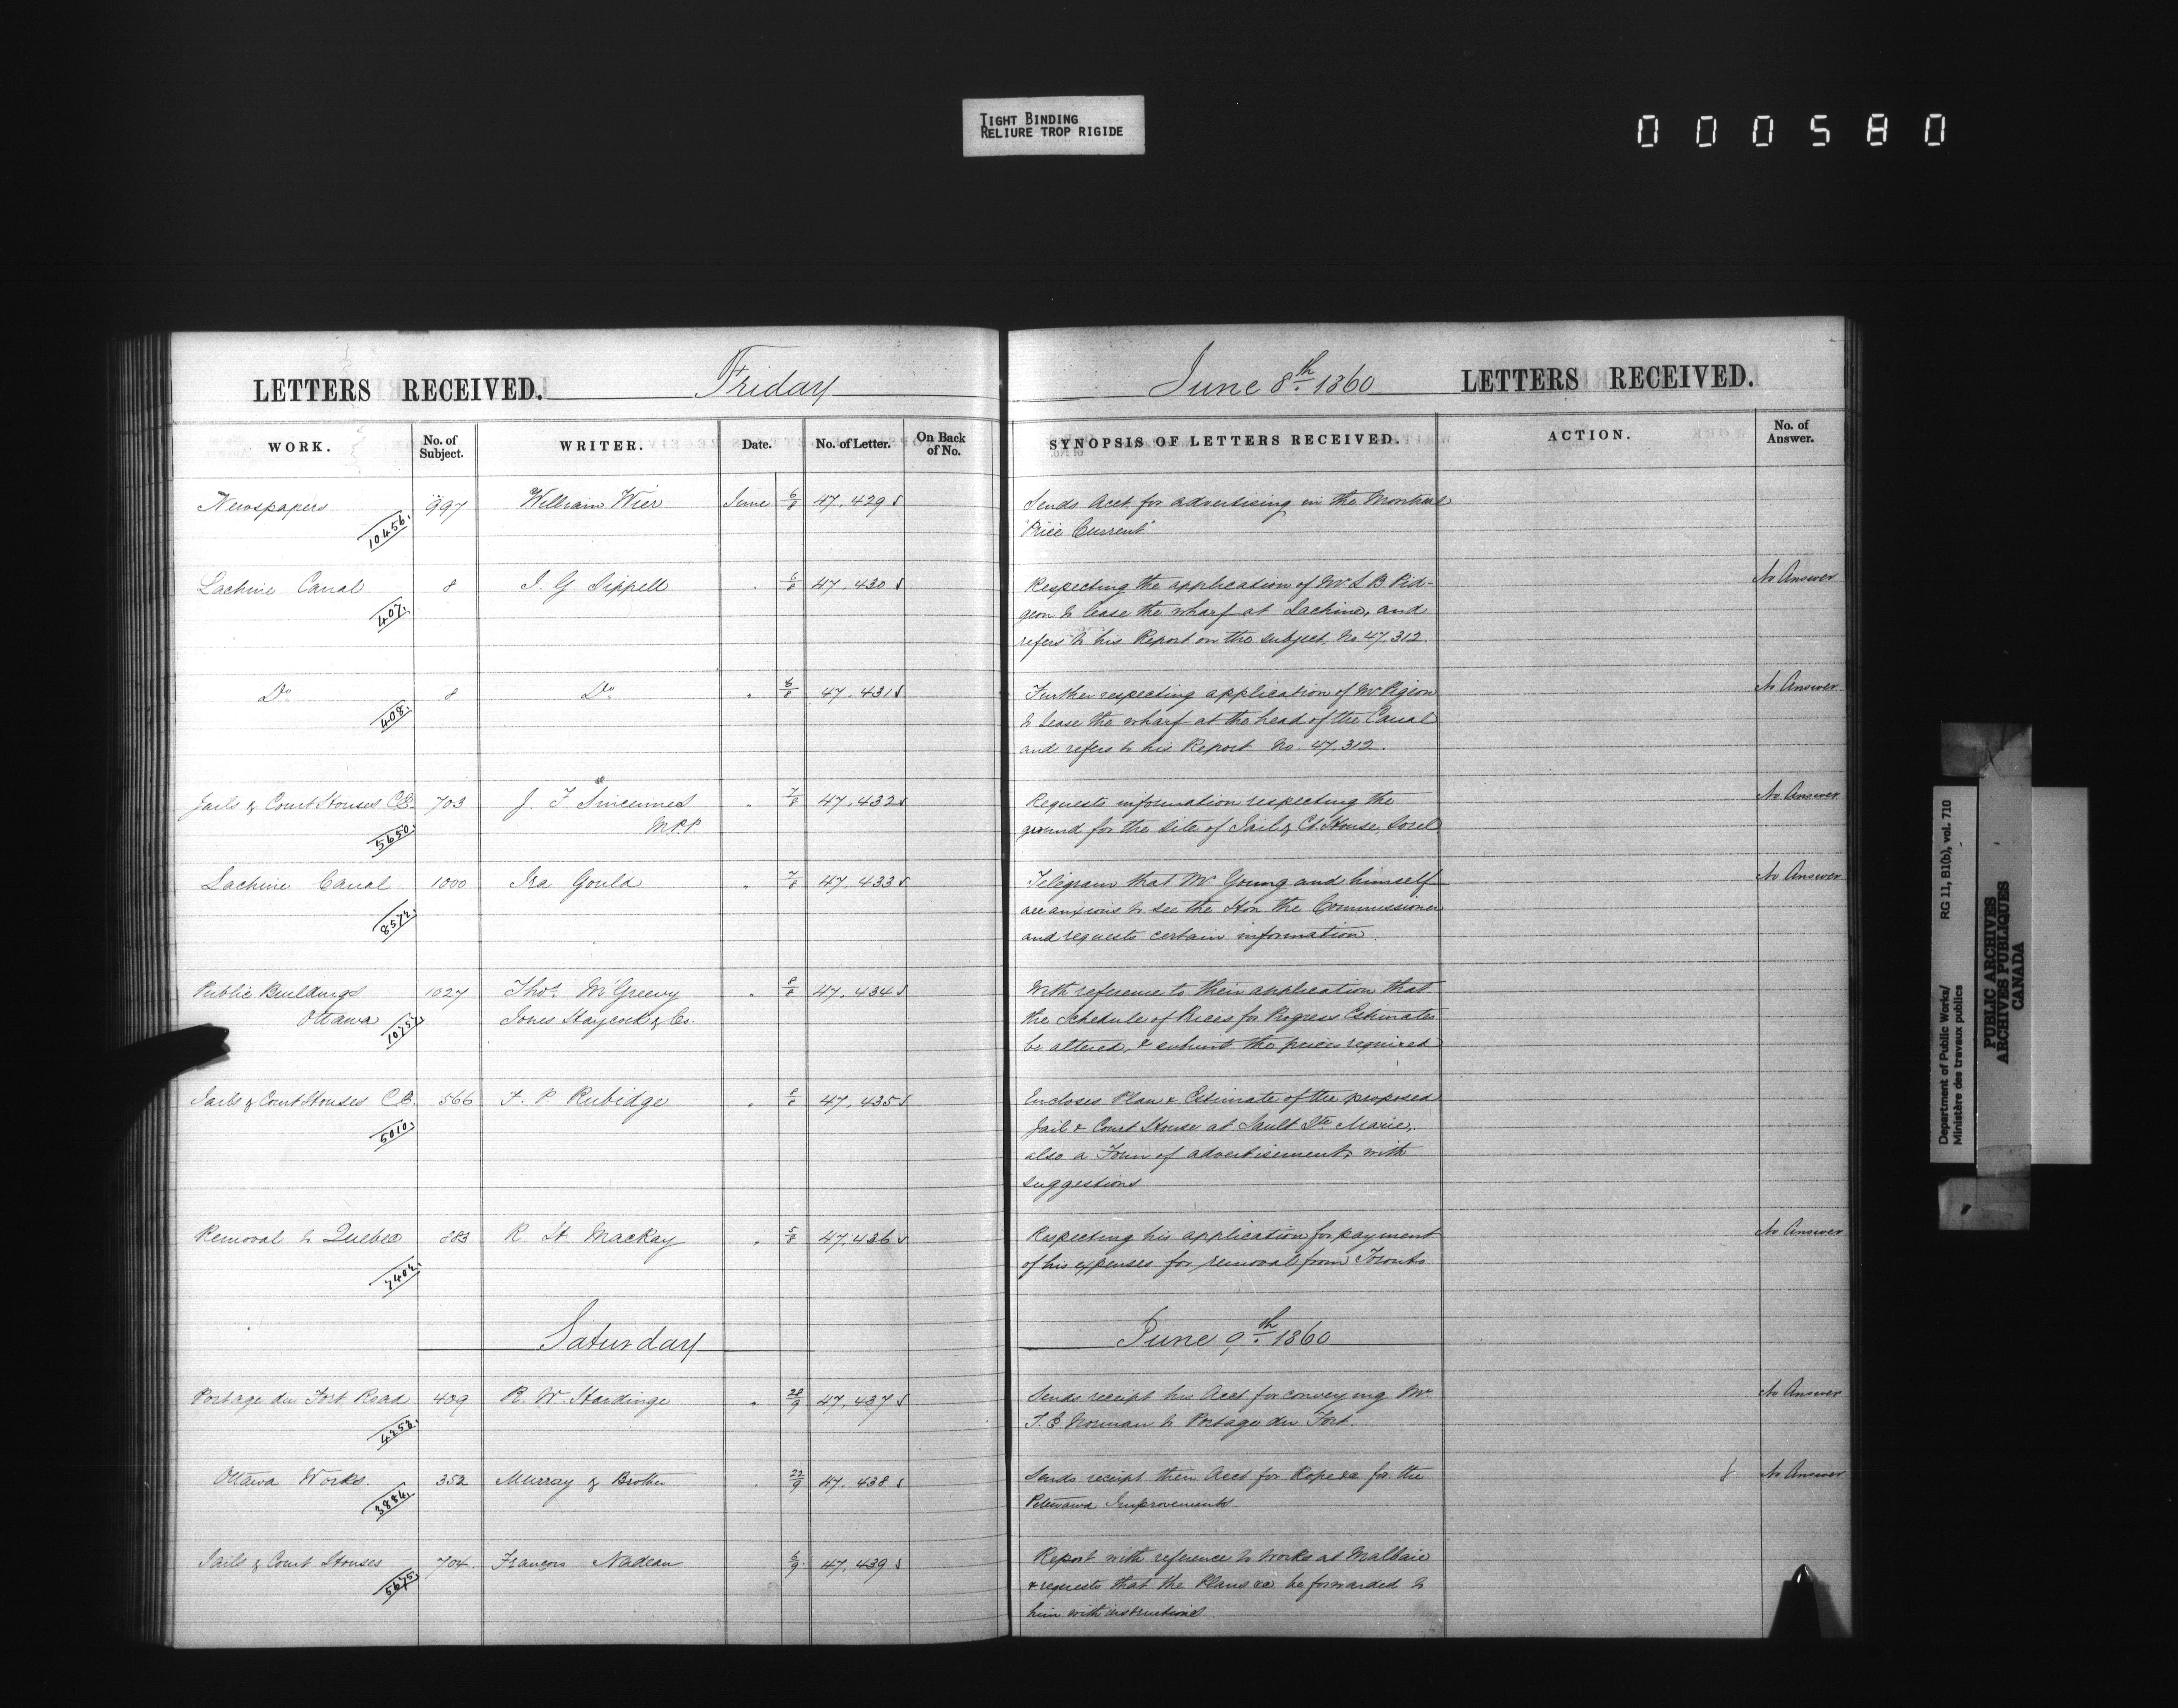 TIGHT BINDING
RELIURE TROP RIGIDE
000580
LETTERS RECEIVED. Friday June 8th 1860 LETTERS RECEIVED.
WORK. No. of Subject. WRITER. Date. No. of Letter. On Back of No. SYNOPSIS OF LETTERS RECEIVED. ACTION. No. of Answer.
Newspapers 997 William Wier June 6/8 47.429 Sends Acct for advertising in the Montreal
10456. "Price Current"
Lachine Canal 8 J. G Sippell " 6/8 47.430 Respecting the application of Mr L B Pid- No Answer
407. geon to lease the wharf at Lachine, and
refers to his Report on the subject, No 47.312
Do 8 Do " 6/8 47.431 Further respecting application of Mr Pigeon No Answer
408. to lease the wharf at the head of the Canal
and refers to his Report No. 47.312.
Jails & Court Houses C.E. 703 J. F. Sincennes " 7/8 47.432 Requests information respecting the No Answer
5650. M.P.P. ground for the site of Jail & Ct. House, Sorel
Lachine Canal 1000 Ira Gould " 7/8 47.433 Telegram that Mr Young and himself No Answer
8572. are anxious to see the Hon the Commissioner
and requests certain information
Public Buildings 1027 Thos. McGreevy " 8/8 47.434 With reference to their application that
Ottawa Jones Haycock & Co. the Schedule of Prices for Progress Estimates
be altered, & submit the prices required
Jails & Court Houses C.E. 566 F. P. Rubidge " 8/8 47.435 Encloses Plan & Estimate of the proposed
5010. Jail & Court House at Sault Ste Marie,
also a Form of advertisement, with
suggestions
Removal to Quebec 883 R St MacKay " 5/8 47.436 Respecting his application for payment No Answer
7402. of his expenses for removal from Toronto
Saturday June 9th 1860
Portage du Fort Road 409 R. W. Hardinge " 28/9 47.437 Sends receipt his Acct for conveying Mr No Answer
4253. T. E Norman to Portage du Fort.
Ottawa Works. 352 Murray & Brother 22/9 47.438 Sends receipt their Acct for Rope &c for the No Answer
3884. Petewawa Improvements
Jails & Court Houses 704. Francois Nadeau 6/9 47.439 Report with reference to works at Malbaie
5675. & requests that the Plans &c be forwarded to
him with instructions
Department of Public Works/ RG 11, B1(b), vol. 710
Ministère des travaux publics
PUBLIC ARCHIVES
ARCHIVES PUBLIQUES
CANADA